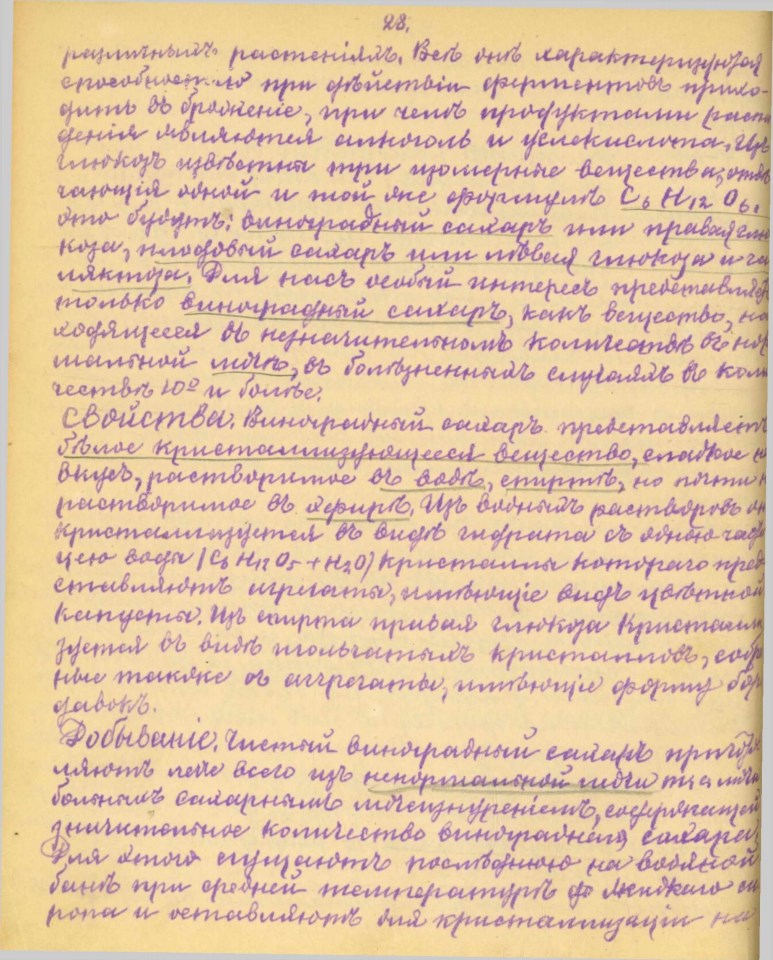 28.
различныхъ растенiяхъ. Всѣ онѣ характеризуются
способностью при дѣйствiи ферментовъ прихо-
дить въ броженiе, при чемъ продуктами распа
денiя являются алкоголь и углекислота. Изъ
глюкозъ извѣстны три изомерные вещества, отвѣ
чающiя одной и той же формулѣ C6 H12 O6.
Это будутъ: виноградный сахаръ или правая глю
коза, плодовый сахаръ или лѣвая глюкоза и га
ляктоза. Для насъ особый интересъ представляетъ
только виноградный сахаръ, какъ вещество, на
ходящееся въ незначительномъ количествѣ въ нор
мальной мочѣ, въ болѣзненныхъ случаяхъ въ коли
чествѣ 10% и болѣе.
Свойства. Виноградный сахаръ представляетъ
бѣлое кристаллизующееся вещество, сладкое на
вкусъ, растворимое въ водѣ, спиртѣ, но почти не
растворимое въ эфирѣ. Изъ водныхъ растворовъ он
кристаллизуется въ видѣ гидрата съ одною части
цею воды (C6 H12 O6 + H2O) кристаллы котораго пред
ставляютъ агрегаты, имѣющiе видъ цвѣтной
капусты. Изъ спирта правая глюкоза кристалли
зуется въ видѣ игольчатыхъ кристалловъ, собра
ные также въ аггрегаты, имѣющiе форму боро
давокъ.
Добыванiе. Чистый виноградный сахаръ приготов
ляютъ легче всего изъ ненормальной мочи т. е. мочи
больныхъ сахарнымъ мочеизнуренiемъ, содержащей
значительное количество винограднаго сахара.
Для этого сгущаютъ послѣднюю на водяной
банѣ при средней температурѣ до жидкаго си
ропа и оставляютъ для кристаллизацiи на